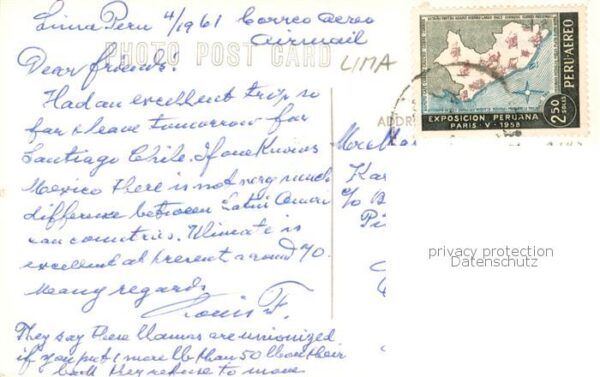 Lima Peru 4/1961 Correo aereo
Airmail
PHOTO POST CARD
LIMA
Dear friends.
Had an excellent trip so
far & leave tomorrow for
Santiago Chile. If one knows
Mexico there is not very much
difference between Latin Ameri
can countries. Climate is
excellent at present around 70.
Many regards
Louis F.
They say these llamas are unionized
if you put 1 more lb than 50 lb on their
back they refuse to move
PERU-AEREO
2.50
SOLES
EXPOSICION PERUANA
PARIS - V - 1958
ADDR
Kar
c/o B
Pi
privacy protection
Datenschutz